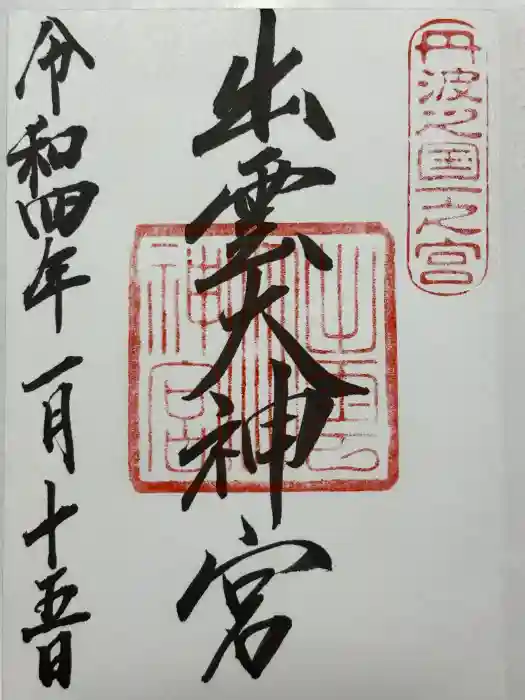 丹波之国一之宮
出雲大神宮
出雲大神宮
令和四年一月十五日